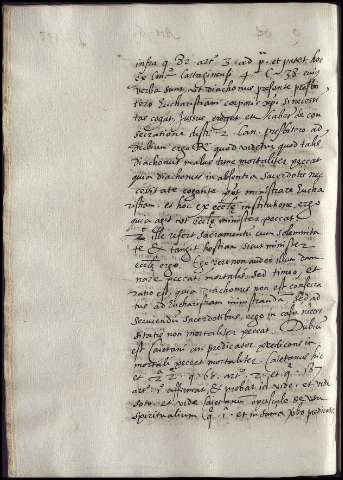 infra q. 82. art. 3. ad p. et patet hoc
ex Conc. Cartaginens. 4. C. 38. cuius
verba sunt, ut diaconus presente presbi-
tero Eucharistiam corporis xpi. si necessi-
tas cogat, Jussus eroget et habet de con-
secratione dist. 2. Can. presbitero. ad
dubium ergo R. quod videtur quod talis
diaconus malus tunc mortaliter peccat
quia diaconus in absentia sacerdotis nec-
cesitate cogente pot. ministrare Eucha-
ristiam. et hoc ex ecclie institutione ergo
quia agit ut ecclie minister peccat
ille refert sacramentum cum solemnita-
te et tangit hostiam sicut minister
ecclie ergo. Ego vero non auderem illum dam-
nare peccati mortalis, sed timeo, et
ratio est, quia diaconus non est consecra-
tus ad Eucharistiam ministrandam sed ad
serviendum sacerdotibus, ergo in casu necces-
sitatis non mortaliter peccat. Dubium
est Caietani an predicator predicans in
mortali peccet mortaliter. Caietanus hic
et 2ª 2ę q. 68. art. 2. et q. 187
art. 1. affirmat, et probat id vide. et vide
soto. et vide Caietanum opusculo de usu
spiritualium q. 1. et in suma verbo predicator